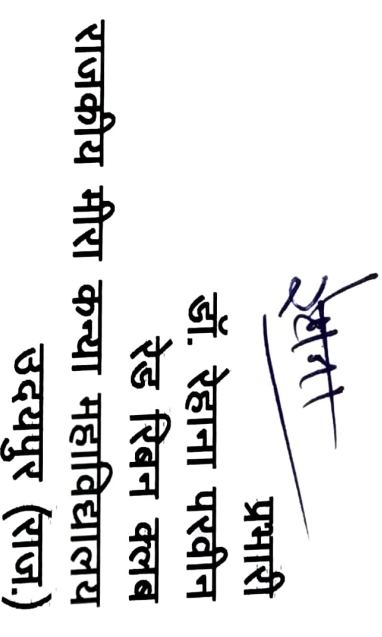 रेहाना
प्रभारी
डॉ. रेहाना परवीन
रेड रिबन क्लब
राजकीय मीरा कन्या महाविद्यालय
उदयपुर (राज.)